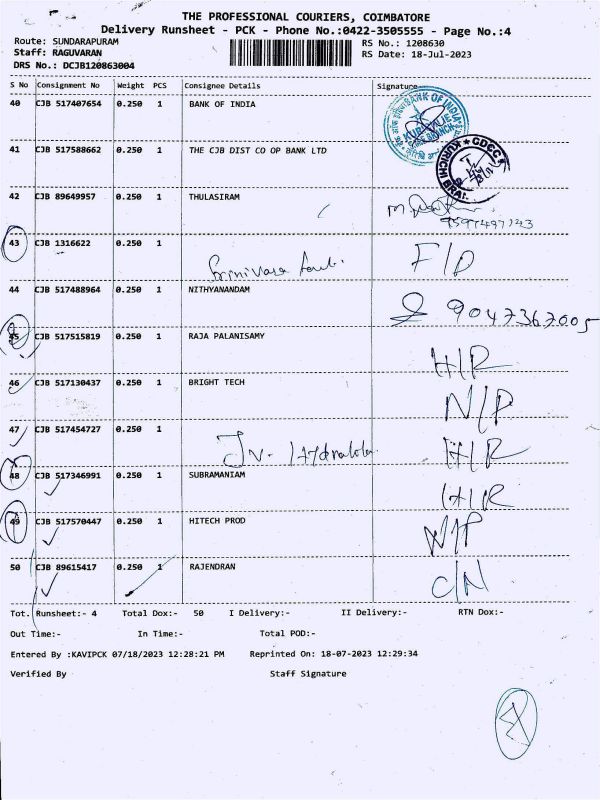 THE PROFESSIONAL COURIERS, COIMBATORE
Delivery Runsheet - PCK - Phone No.:0422-3505555 - Page No.:4
Route: SUNDARAPURAM RS No.: 1208630
Staff: RAGUVARAN RS Date: 18-Jul-2023
DRS No.: DCJB120863004
S No Consignment No Weight PCS Consignee Details Signature
40 CJB 517407654 0.250 1 BANK OF INDIA
BANK OF INDIA
41 CJB 517588662 0.250 1 THE CJB DIST CO OP BANK LTD
42 CJB 89649957 0.250 1 THULASIRAM
43 CJB 1316622 0.250 1 F/D
Srinivasa
44 CJB 517488964 0.250 1 NITHYANANDAM
9047367005
45 CJB 517515819 0.250 1 RAJA PALANISAMY
H/R
46 CJB 517130437 0.250 1 BRIGHT TECH
N/P
47 CJB 517454727 0.250 1
H/R
48 CJB 517346991 0.250 1 SUBRAMANIAM
H/R
49 CJB 517570447 0.250 1 HITECH PROD
N/P
50 CJB 89615417 0.250 1 RAJENDRAN
C/N
Tot. Runsheet:- 4 Total Dox:- 50 I Delivery:- II Delivery:- RTN Dox:-
Out Time:- In Time:- Total POD:-
Entered By :KAVIPCK 07/18/2023 12:28:21 PM Reprinted On: 18-07-2023 12:29:34
Verified By Staff Signature